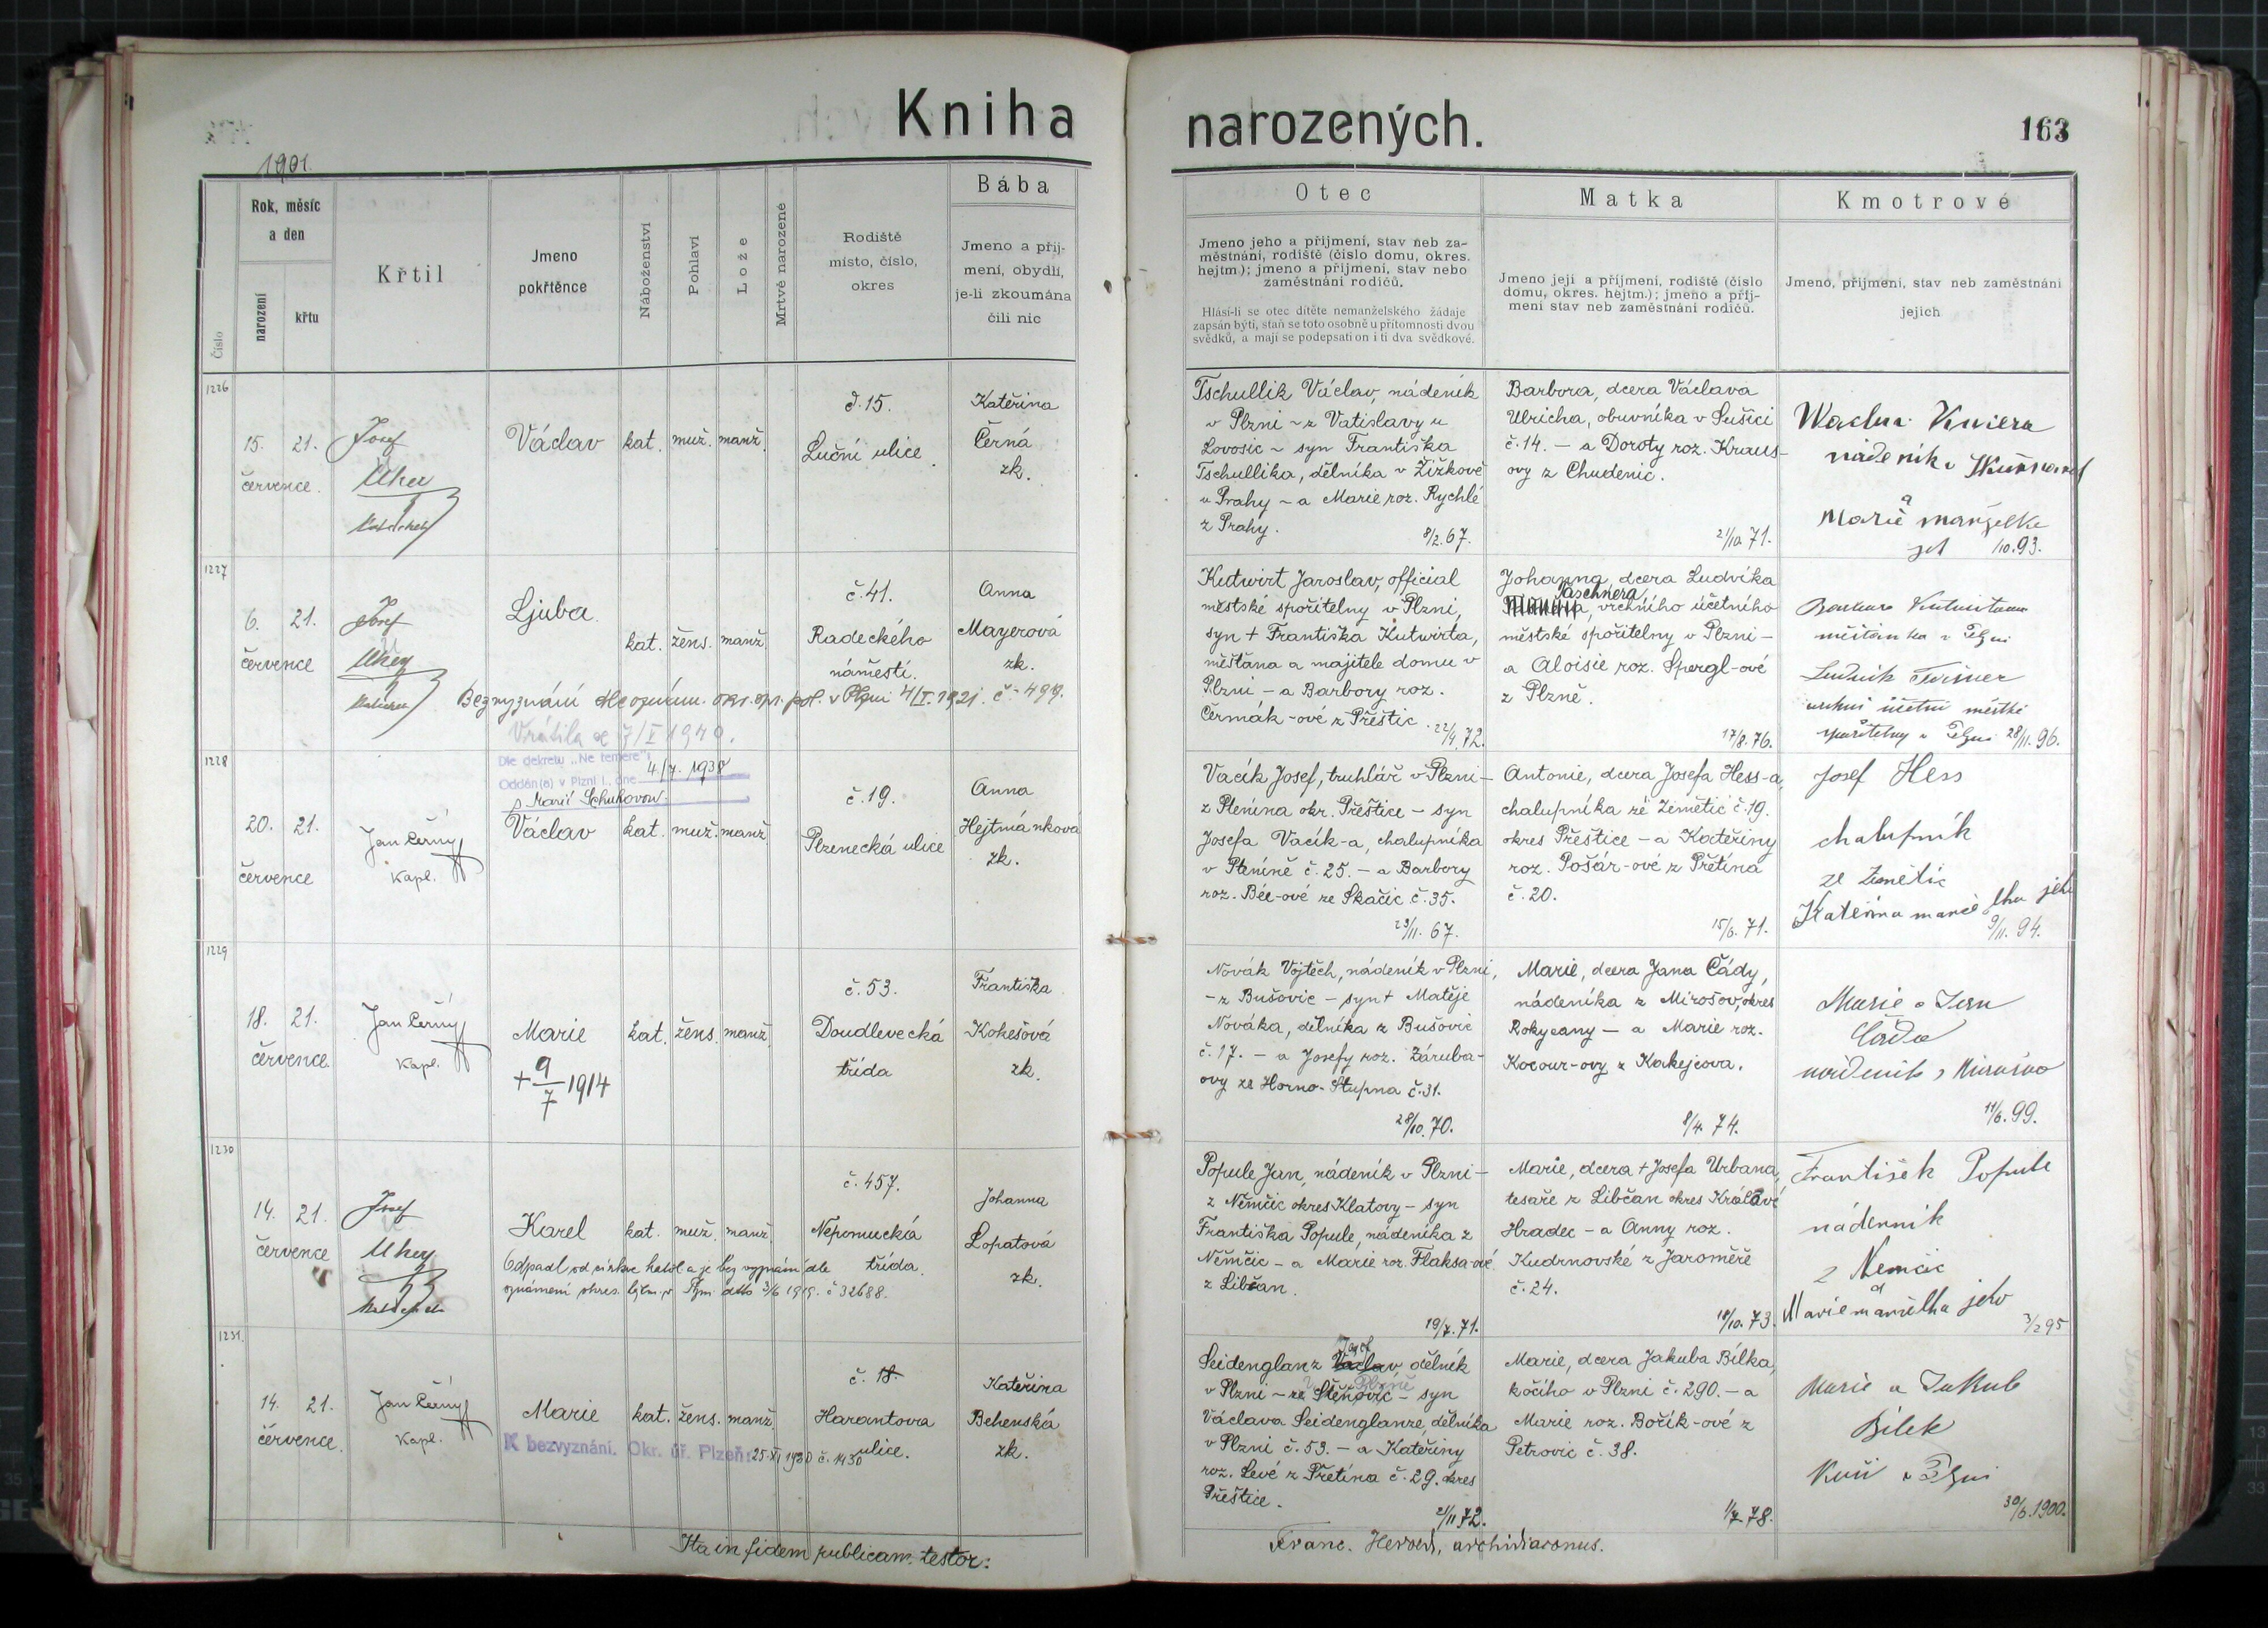 Kniha
narozených.
163
1901.
Číslo
Rok, měsíc
a den
narození
křtu
Křtil
Jmeno
pokřtěnce
Náboženství
Pohlaví
Lože
Mrtvě narozené
Rodiště
místo, číslo,
okres
Bába
Jmeno a příj-
mení, obydlí,
je-li zkoumána
čili nic
Otec
Jmeno jeho a příjmení, stav neb za-
městnání, rodiště (číslo domu, okres.
hejtm.); jmeno a příjmení, stav nebo
zaměstnání rodičů.
Hlásí-li se otec dítěte nemanželského žádaje
zapsán býti, staň se toto osobně u přítomnosti dvou
svědků, a mají se podepsati on i ti dva svědkové.
Matka
Jmeno její a příjmení, rodiště (číslo
domu, okres. hejtm.); jmeno a příj-
mení stav neb zaměstnání rodičů.
Kmotrové
Jmeno, příjmení, stav neb zaměstnání
jejich
1226
15. 21.
července.
Josef
Uher
Václav
kat. muž. manž.
č. 15.
Luční ulice.
Kateřina
Černá
zk.
Tschullik Václav, nádeník
v Plzni - z Vatislavy u
Lovosic - syn Františka
Tschullika, dělníka v Žižkově
u Prahy - a Marie roz. Rychlé
z Prahy.
8/2. 67.
Barbora, dcera Václava
Ulricha, obuvníka v Sušici
č. 14. - a Doroty roz. Kraus-
ovy z Chudenic.
21/10 71.
nádeník v
a
Marie manželka
/10. 93.
1227
6. 21.
července
Josef
Uher
Ljuba.
kat. žens. manž.
č. 41.
Radeckého
náměstí.
Anna
Mayerová
zk.
Bez vyznání dle oznám. okr. spr. pol. v Plzni 4/I. 1921. č. 499.
Vrátila se 7/I 1940.
Kutwirt Jaroslav, official
městské spořitelny v Plzni,
syn + Františka Kutwirta,
měšťana a majitele domu v
Plzni - a Barbory roz.
Čermák-ové z Přeštic.
22/4. 72.
Johanna, dcera Ludvíka
Taschnera,
vrchního účetního
městské spořitelny v Plzni -
a Aloisie roz. Spergl-ové
z Plzně.
17/8. 76.
měšťanka v Plzni
Ludvík
vrchní účetní městské
spořitelny v Plzni 28/11. 96.
1228
Dle dekretu „Ne temere"
Oddán(a) v Plzni I., dne 4/7. 1938
s Marií Schuhovou.
20. 21.
července
Jan Černý
Kapl.
Václav
kat. muž. manž.
č. 19.
Plzenecká ulice
Anna
Hejtmánková
zk.
Vacík Josef, truhlář v Plzni -
z Plenína okr. Přeštice - syn
Josefa Vacík-a, chalupníka
v Pleníně č. 25. - a Barbory
roz. Bée-ové ze Skačic č. 35.
23/11. 67.
Antonie, dcera Josefa Hess-a,
chalupníka ze Zemětic č. 19.
okres Přeštice - a Kateřiny
roz. Pošár-ové z Přetína
č. 20.
15/6. 71.
Josef Hess
chalupník
ze Zemětic
Kateřina manželka jeho
9/11. 94.
1229
18. 21.
července.
Jan Černý
Kapl.
Marie
+ 9/7 1914
kat. žens. manž.
č. 53.
Doudlevecká
třída
Františka
Kokešová
zk.
Novák Vojtěch, nádeník v Plzni,
- z Bušovic - syn + Matěje
Nováka, dělníka z Bušovic
č. 17. - a Josefy roz. Záruba-
ovy ze Horno-Stupna č. 31.
28/10. 70.
Marie, dcera Jana Čády,
nádeníka z Mirošov, okres
Rokycany - a Marie roz.
Kocour-ovy z Kakejcova.
8/4. 74.
Marie a Jan
Čáda
nádeník z Mirošova
11/6. 99.
1230
14. 21.
července
Josef
Uher
Karel
kat. muž. manž.
č. 457.
Nepomucká
třída.
Johanna
Lopatová
zk.
Odpadl od církve katol a je bez vyznání dle
oznámení okres. hejtm. v Plzni dtto 3/6 1919. č 32688.
Popule Jan, nádeník v Plzni -
z Němčic okres Klatovy - syn
Františka Popule, nádeníka z
Němčic - a Marie roz. Flaksa-ové
z Libčan.
19/7. 71.
Marie, dcera + Josefa Urbana,
tesaře z Libčan okres Králové
Hradec - a Anny roz.
Kudrnovské z Jaroměře
č. 24.
18/10. 73.
František Popule
nádenník
z Nemčic
a
Marie manželka jeho
3/2 95
1231.
14. 21.
července.
Jan Černý
Kapl.
Marie
kat. žens. manž.
č. 18.
Harantova
ulice.
Kateřina
Behenská
zk.
K bezvyznání. Okr. úř. Plzeň: 25. XI 1930 č. 1430
Josef
Seidenglanz Václav dělník
v Plzni - ze Štěnovic - syn
Václava Seidenglanze, dělníka
v Plzni č. 53. - a Kateřiny
roz. Levé z Přetína č. 29. okres
Přeštice.
21/11 72.
Marie, dcera Jakuba Bílka,
kočího v Plzni č. 290. - a
Marie roz. Bořík-ové z
Petrovic č. 38.
1/7. 78.
Marie a Jakub
Bílek
Kočí v Plzni
30/6. 1900.
Ita in fidem publicam testor:
Franc. Herold, archidiaconus.